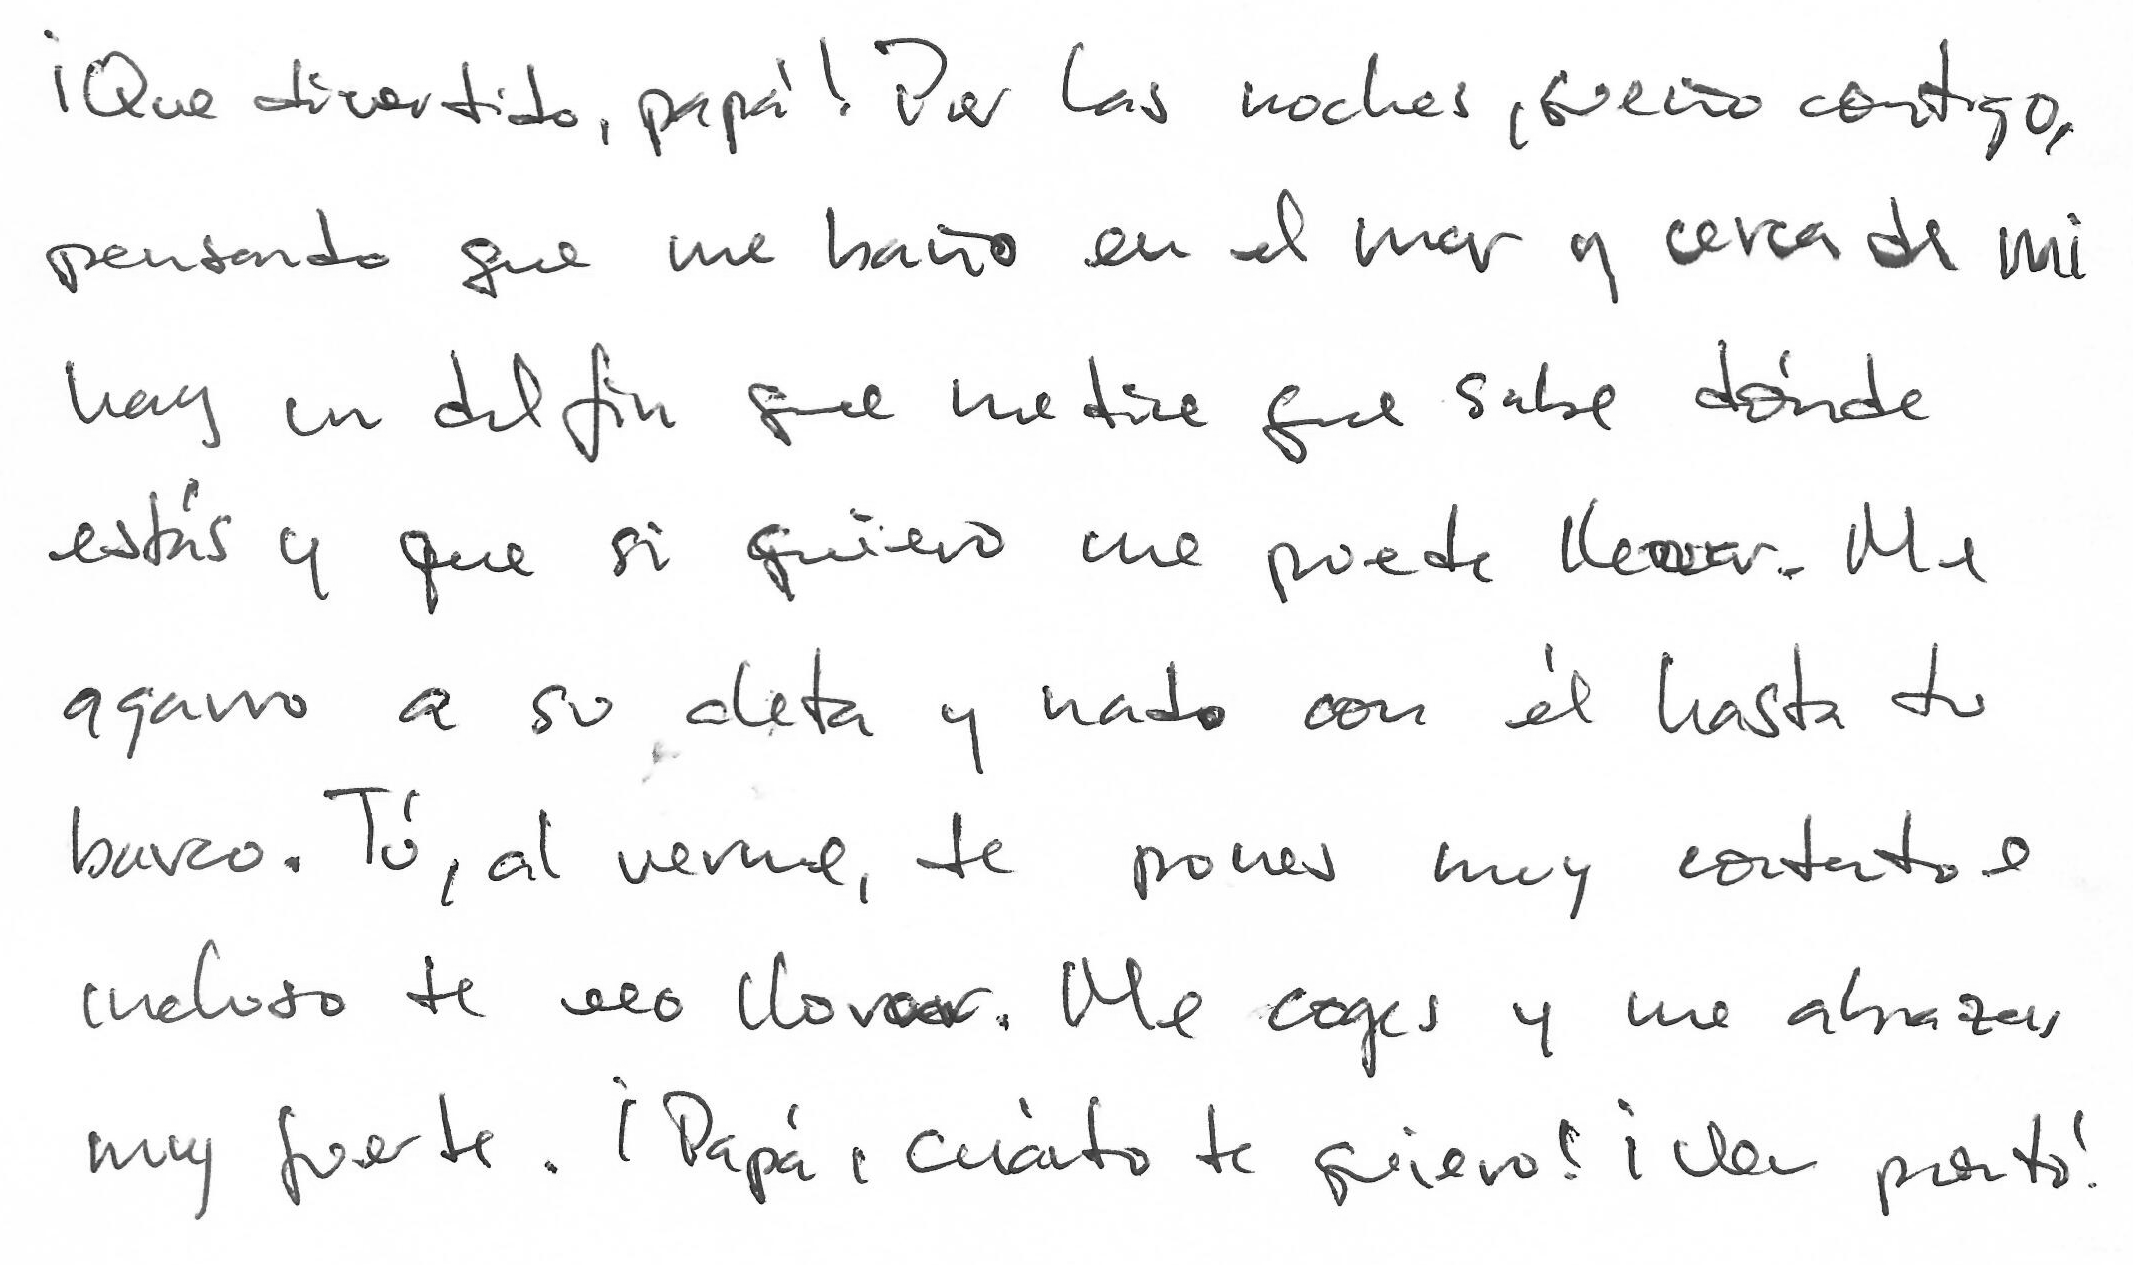 ¡Que divertido, papá! Por las noches, sueño contigo,
pensando que me baño en el mar y cerca de mi
hay un delfín que me dice que sabe dónde
estás y que si quiero me puede llevar. Me
agarro a su aleta y nado con él hasta tu
barco. Tú, al verme, te pones muy contento e
incluso te veo llorar. Me coges y me abrazas
muy fuerte. ¡Papá, cuánto te quiero! ¡Ven pronto!